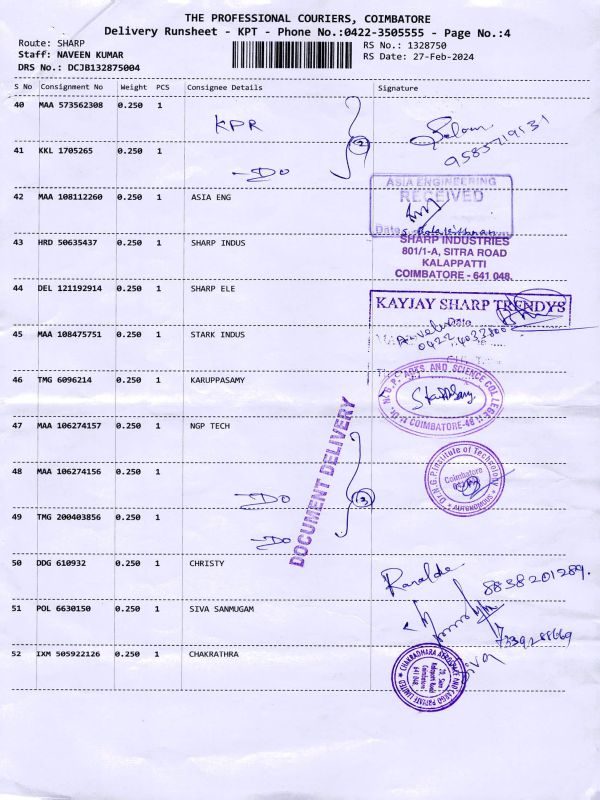 THE PROFESSIONAL COURIERS, COIMBATORE
Delivery Runsheet - KPT - Phone No.:0422-3505555 - Page No.:4
Route: SHARP
Staff: NAVEEN KUMAR
DRS No.: DCJB132875004
RS No.: 1328750
RS Date: 27-Feb-2024
S No Consignment No Weight PCS Consignee Details Signature
40 MAA 573562308 0.250 1 KPR
9585719131
41 KKL 1705265 0.250 1 Do
42 MAA 108112260 0.250 1 ASIA ENG
ASIA ENGINEERING
RECEIVED
Date
43 HRD 50635437 0.250 1 SHARP INDUS
SHARP INDUSTRIES
801/1-A, SITRA ROAD
KALAPPATTI
COIMBATORE - 641 048.
44 DEL 121192914 0.250 1 SHARP ELE
KAYJAY SHARP TRENDYS
Date
45 MAA 108475751 0.250 1 STARK INDUS
46 TMG 6096214 0.250 1 KARUPPASAMY
Dr. N.G.P. ARTS AND SCIENCE COLLEGE
COIMBATORE-48
47 MAA 106274157 0.250 1 NGP TECH
DOCUMENT DELIVERY
48 MAA 106274156 0.250 1 Do
Dr. N.G.P. Institute of Technology
Coimbatore
AUTONOMOUS
49 TMG 200403856 0.250 1 Do
50 DDG 610932 0.250 1 CHRISTY
8838201289.
51 POL 6630150 0.250 1 SIVA SANMUGAM
7339288669
Siva
52 IXM 505922126 0.250 1 CHAKRATHRA
CHAKRADHARA AEROSPACE AND CARGO PRIVATE LIMITED